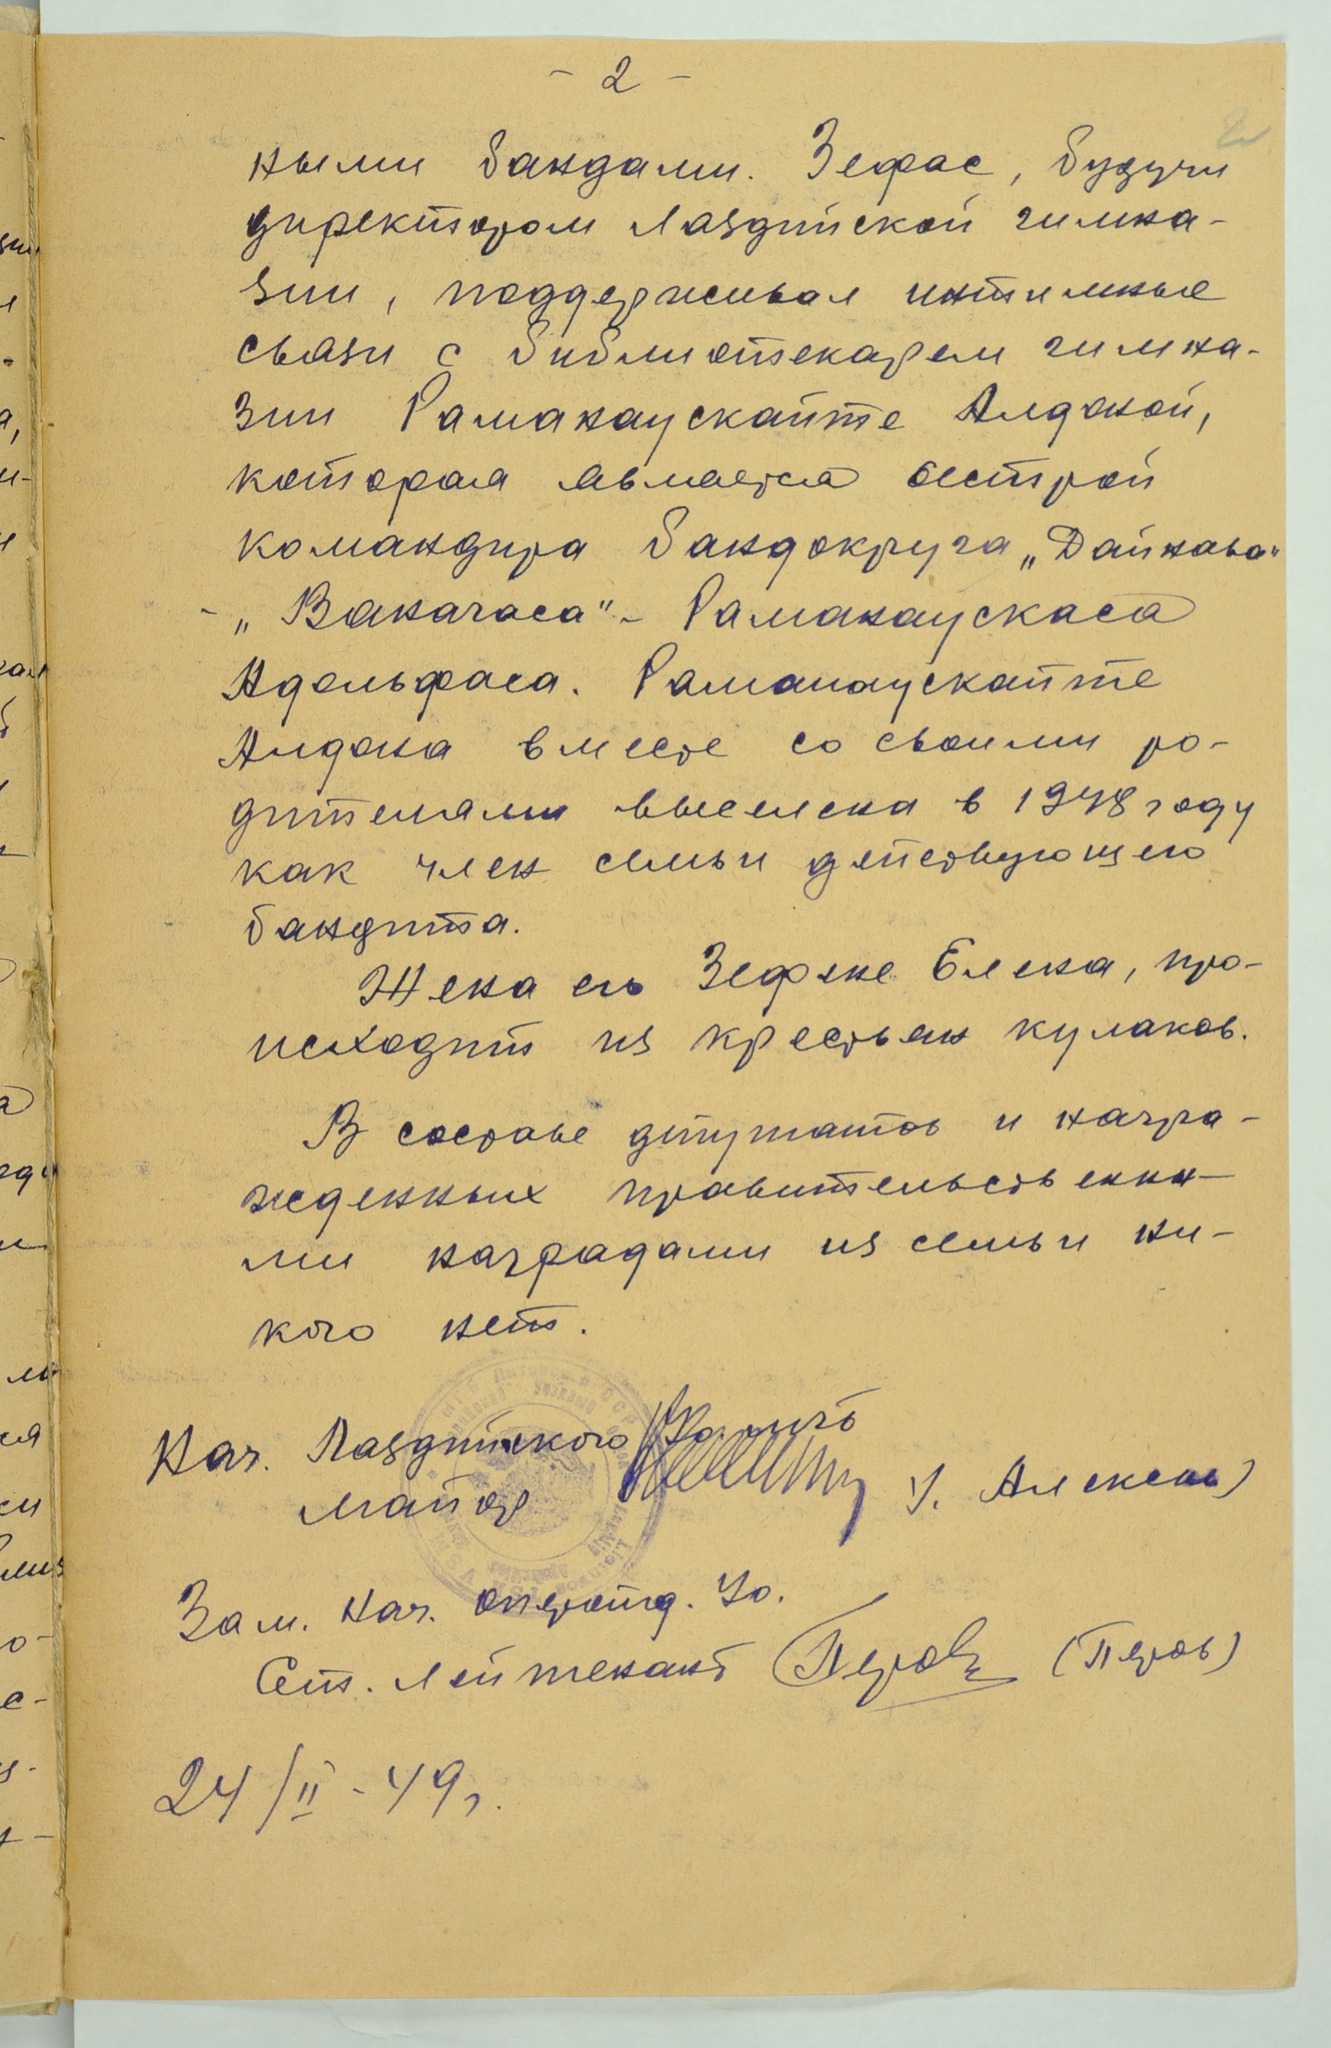 - 2 -
ными бандами. Зефас, будучи
директором Лаздийской гимна-
зии, поддерживал интимные
связи с библиотекарем гимна-
зии Раманаускайте Алдоной,
которая является сестрой
командира бандокруга „Дайнава"
- „Ванагаса" - Раманаускаса
Адольфаса. Раманаускайте
Алдона вместе со своими ро-
дителями выселена в 1948 году
как член семьи действующего
бандита.
Жена его Зефене Елена, про-
исходит из крестьян кулаков.
В составе депутатов и награ-
жденных правительственны-
ми наградами из семьи ни-
кого нет.
Нач. Лаздийского Уо МГБ
майор
Зам. Нач. оперотд. Уо.
Ст. Лейтенант Перов (Перов)
24/II - 49 г.